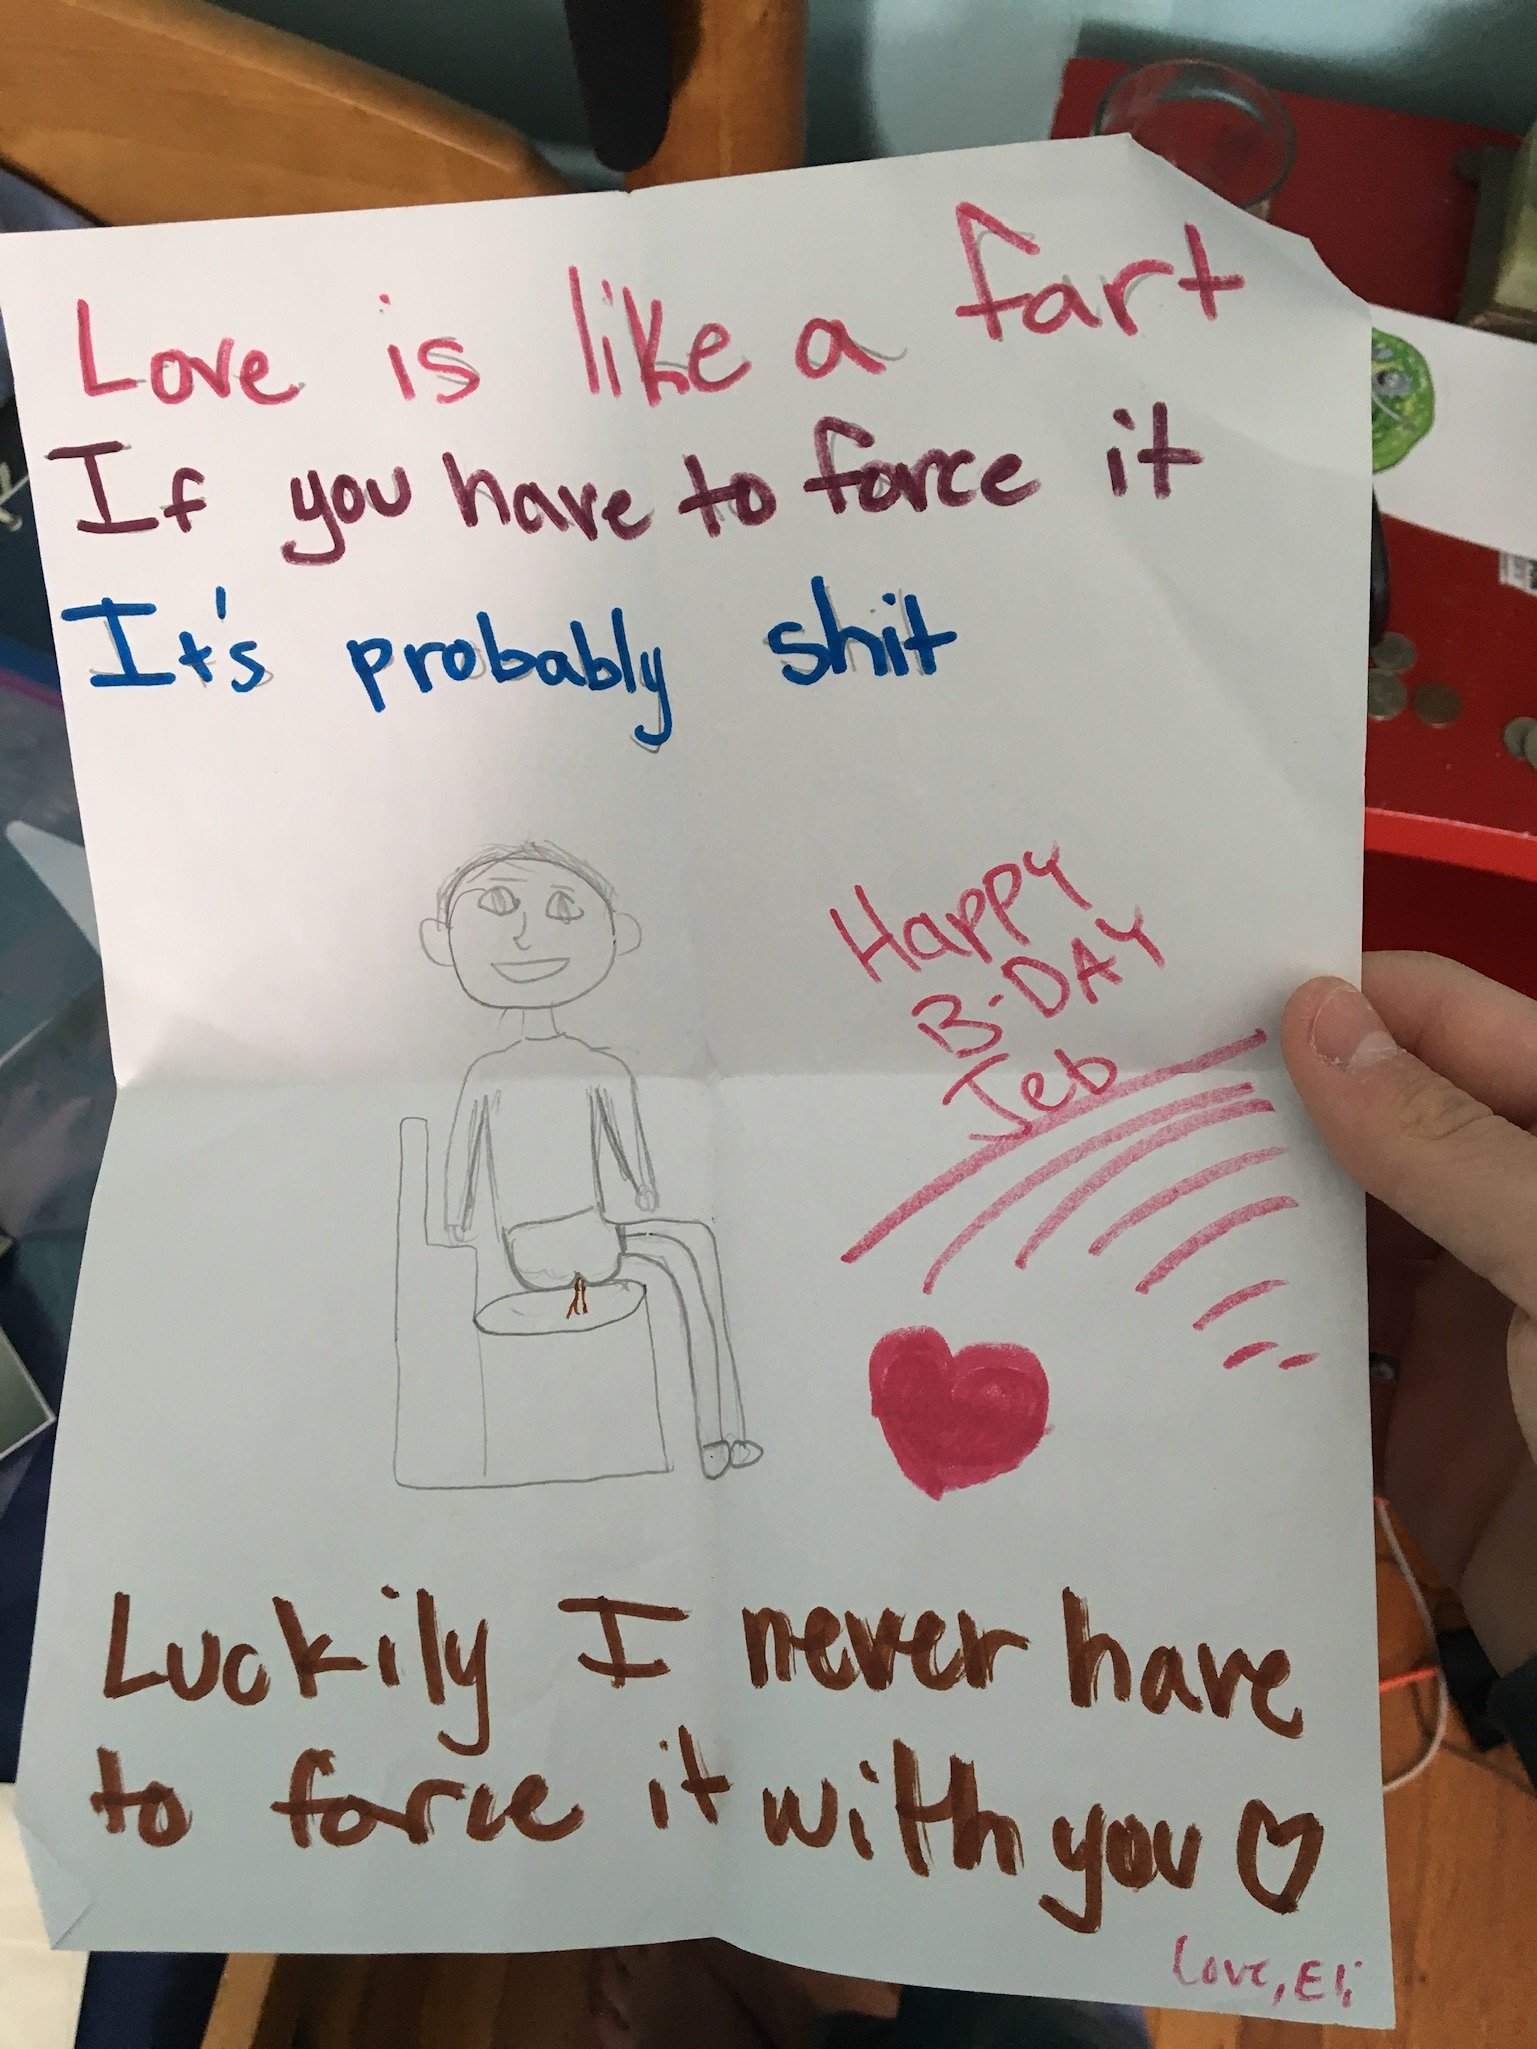 Love is like a fart
If you have to force it
It's probably shit
Happy
B-DAY
Jeb
Luckily I never have
to force it with you ♡
Love, Eli